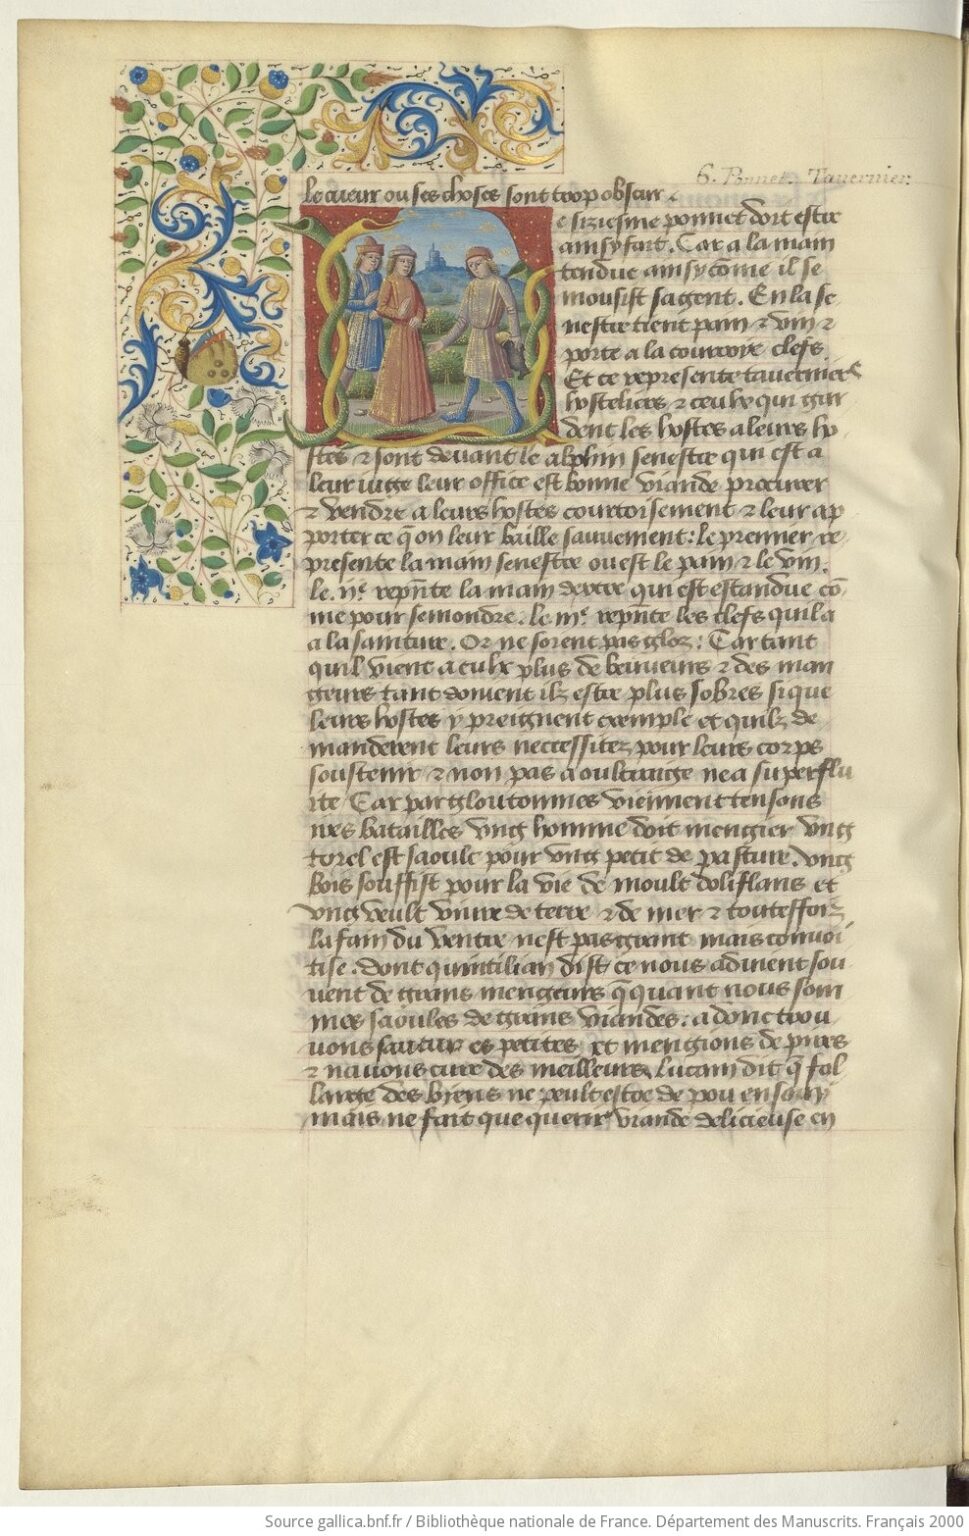 6. Ponnet. Tavernier.
le cueur ou ses choses sont trop obscur
e siziesme ponnet doit estre
ainsy fait. Car a la main
tendue ainsy cōme il se
mousist sagent. En la se
nestre tient pain ⁊ vin ⁊
porte a la courroye clefs
Et ce represente taverniers
hosteliers ⁊ ceulx qui gar
dent les hostes a leurs ho
stes ⁊ sont devant le alphin senestre qui est a
leur iuge leur office est bonne viande procurer
⁊ vendre a leurs hostes courtoisement ⁊ leur ap
porter ce q̄ on leur baille sauvement: le premier re
presente la main senestre ou est le pain ⁊ le vin.
le .ij.e repn̄te la main dextre qui est estandue cō
me pour semondre. le iij.e repn̄te les clefs quil a
a la sainture. Or ne soient pas gloz: Car tant
quil vient a eulx plus de beuveurs ⁊ des man
geurs tant doivent ilz estre plus sobres si que
leurs hostes y preignent exemple et quilz de
manderent leurs necessitez pour leurs corps
soustenir ⁊ non pas a oultraige ne a superflu
ite Car par gloutonnies viennent tensons
ires batailles Ung homme doit mengier Ung
torel est saoule pour ung petit de pasture. Ung
bois souffist pour la vie de moult dolifans et
ung veult vivre de terre ⁊ de mer ⁊ touteffoiz
la fain du ventre nest pas grant mais convoi
tise. dont quintilian dist ce nous advient sou
vent de grans mengeurs q̄ quant nous som
mes saoules de grans viandes: adonc trou
vons saveur es petites et mengions de pures
⁊ navons cure des meilleurs Lucain dit q̄ fol
large des biens ne peult estre de pou
mais ne fait que querir viande delicieuse en
Source gallica.bnf.fr / Bibliothèque nationale de France. Département des Manuscrits. Français 2000